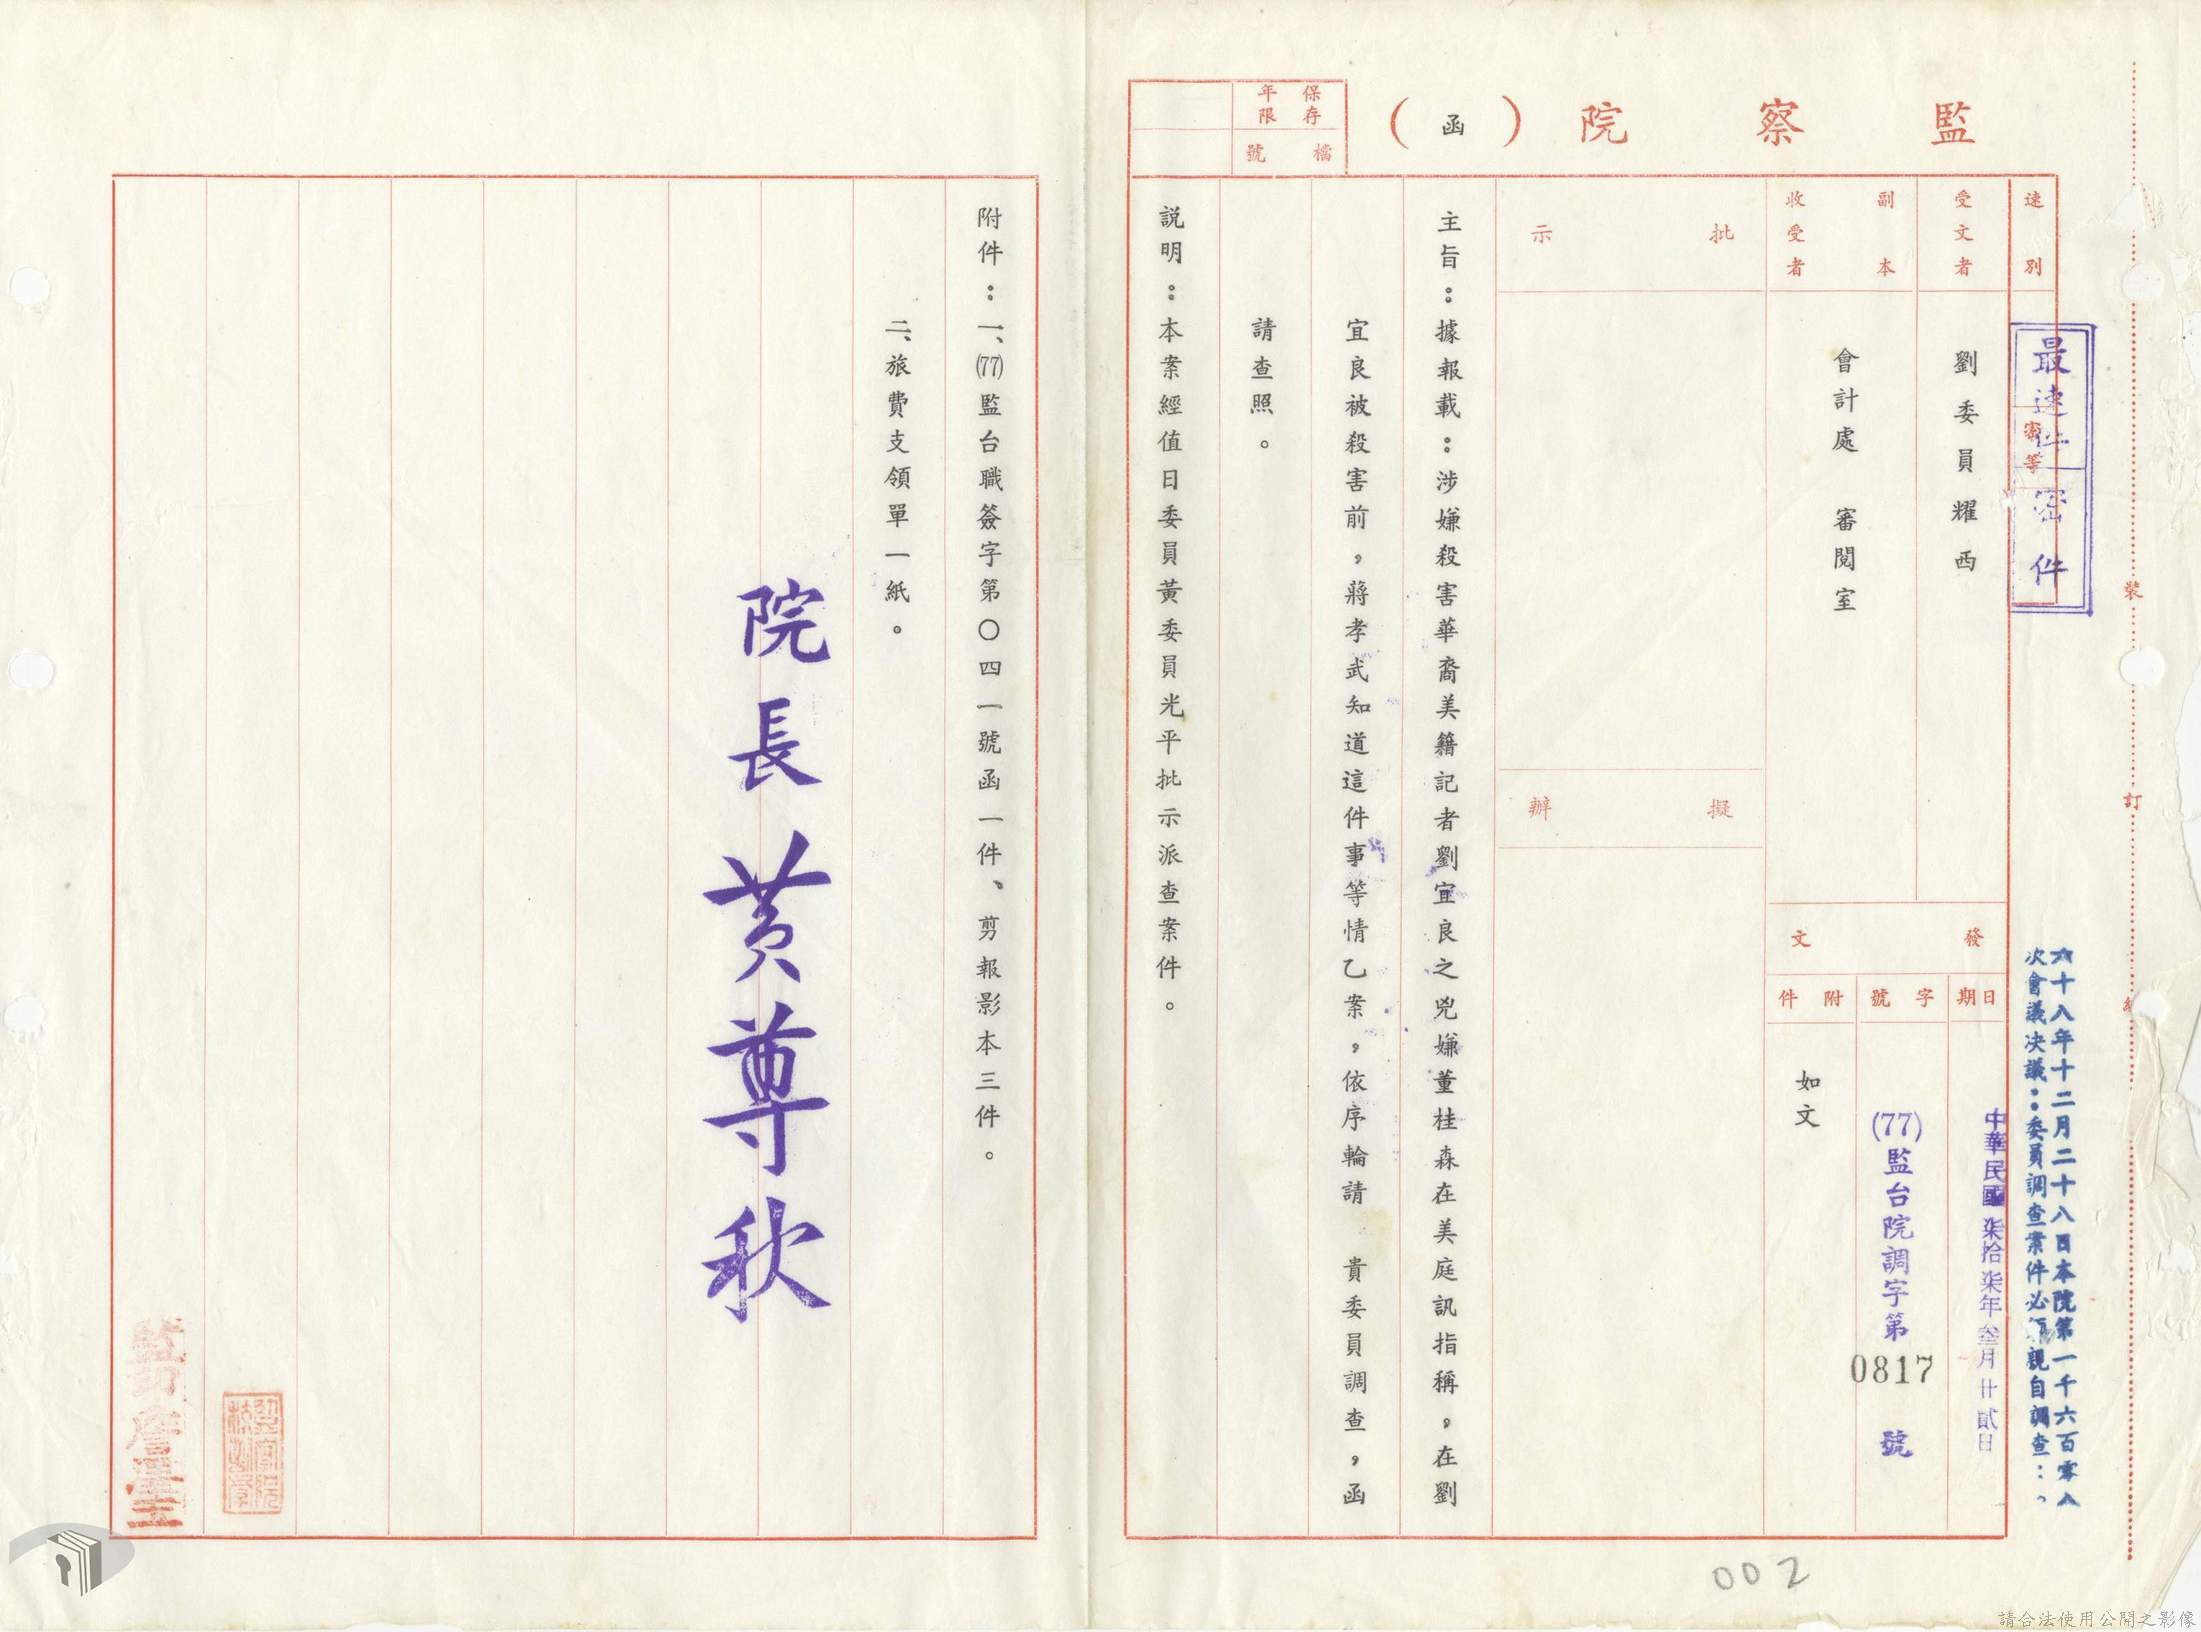 監察院（函）
保存年限
檔號
速別
最速件
密等
密件
受文者
劉委員耀西
副本收受者
會計處　審閱室
發文
日期
中華民國柒拾柒年叁月廿貳日
字號
(77)監台院調字第0817號
附件
如文
批示
擬辦
主旨：據報載：涉嫌殺害華裔美籍記者劉宜良之兇嫌董桂森在美庭訊指稱，在劉
宜良被殺害前，蔣孝武知道這件事等情乙案，依序輪請　貴委員調查，函
請查照。
說明：本案經值日委員黃委員光平批示派查案件。
附件：一、(77)監台職簽字第〇四一號函一件、剪報影本三件。
二、旅費支領單一紙。
院長黃尊秋
六十八年十二月二十八日本院第一千六百零八
次會議決議：委員調查案件必須親自調查：。
裝
訂
線
監印
002
請合法使用公開之影像